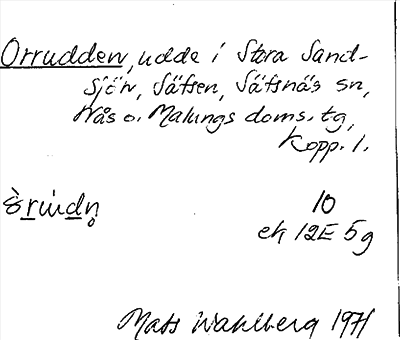 Orrudden, udde i Stora Sand-
sjön, Säfsen, Säfsnäs sn,
Nås o. Malungs doms. tg,
Kopp. l.
10
ek 12E 5g
Mats Wahlberg 1971